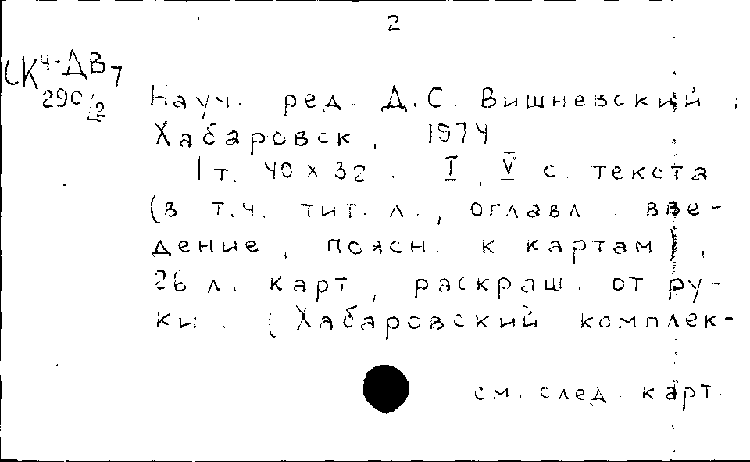 2
СК Ч-ДВ7
290/2
Науч. ред. Д.С. Вишневский.
Хабаровск, 1974
1 т. 40 x 32. I, V с. текста
(в т.ч. тит. л., оглавл., вве-
дение, поясн. к картам),
26 л. карт, раскраш. от ру-
ки. (Хабаровский комплек-
см. след. карт.